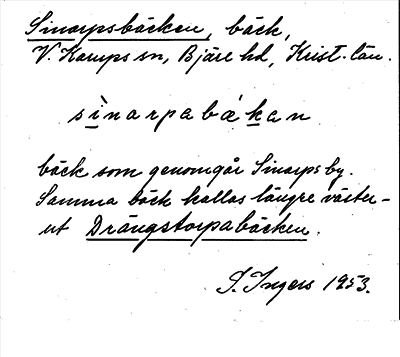 Sinarpsbäcken, bäck,
V. Karups sn, Bjäre hd, Krist. län.
sìnarpabákan
bäck som genomgår Sinarps by.
Samma bäck kallas längre väster-
ut Drängstorpabäcken.
I. Ingers 1953.